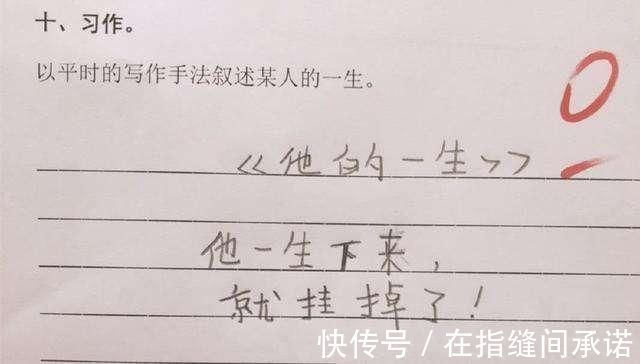 十、习作。
以平时的写作手法叙述某人的一生。
0
《他的一生》
他一生下来，
就挂掉了！
快传号／在指缝间承诺